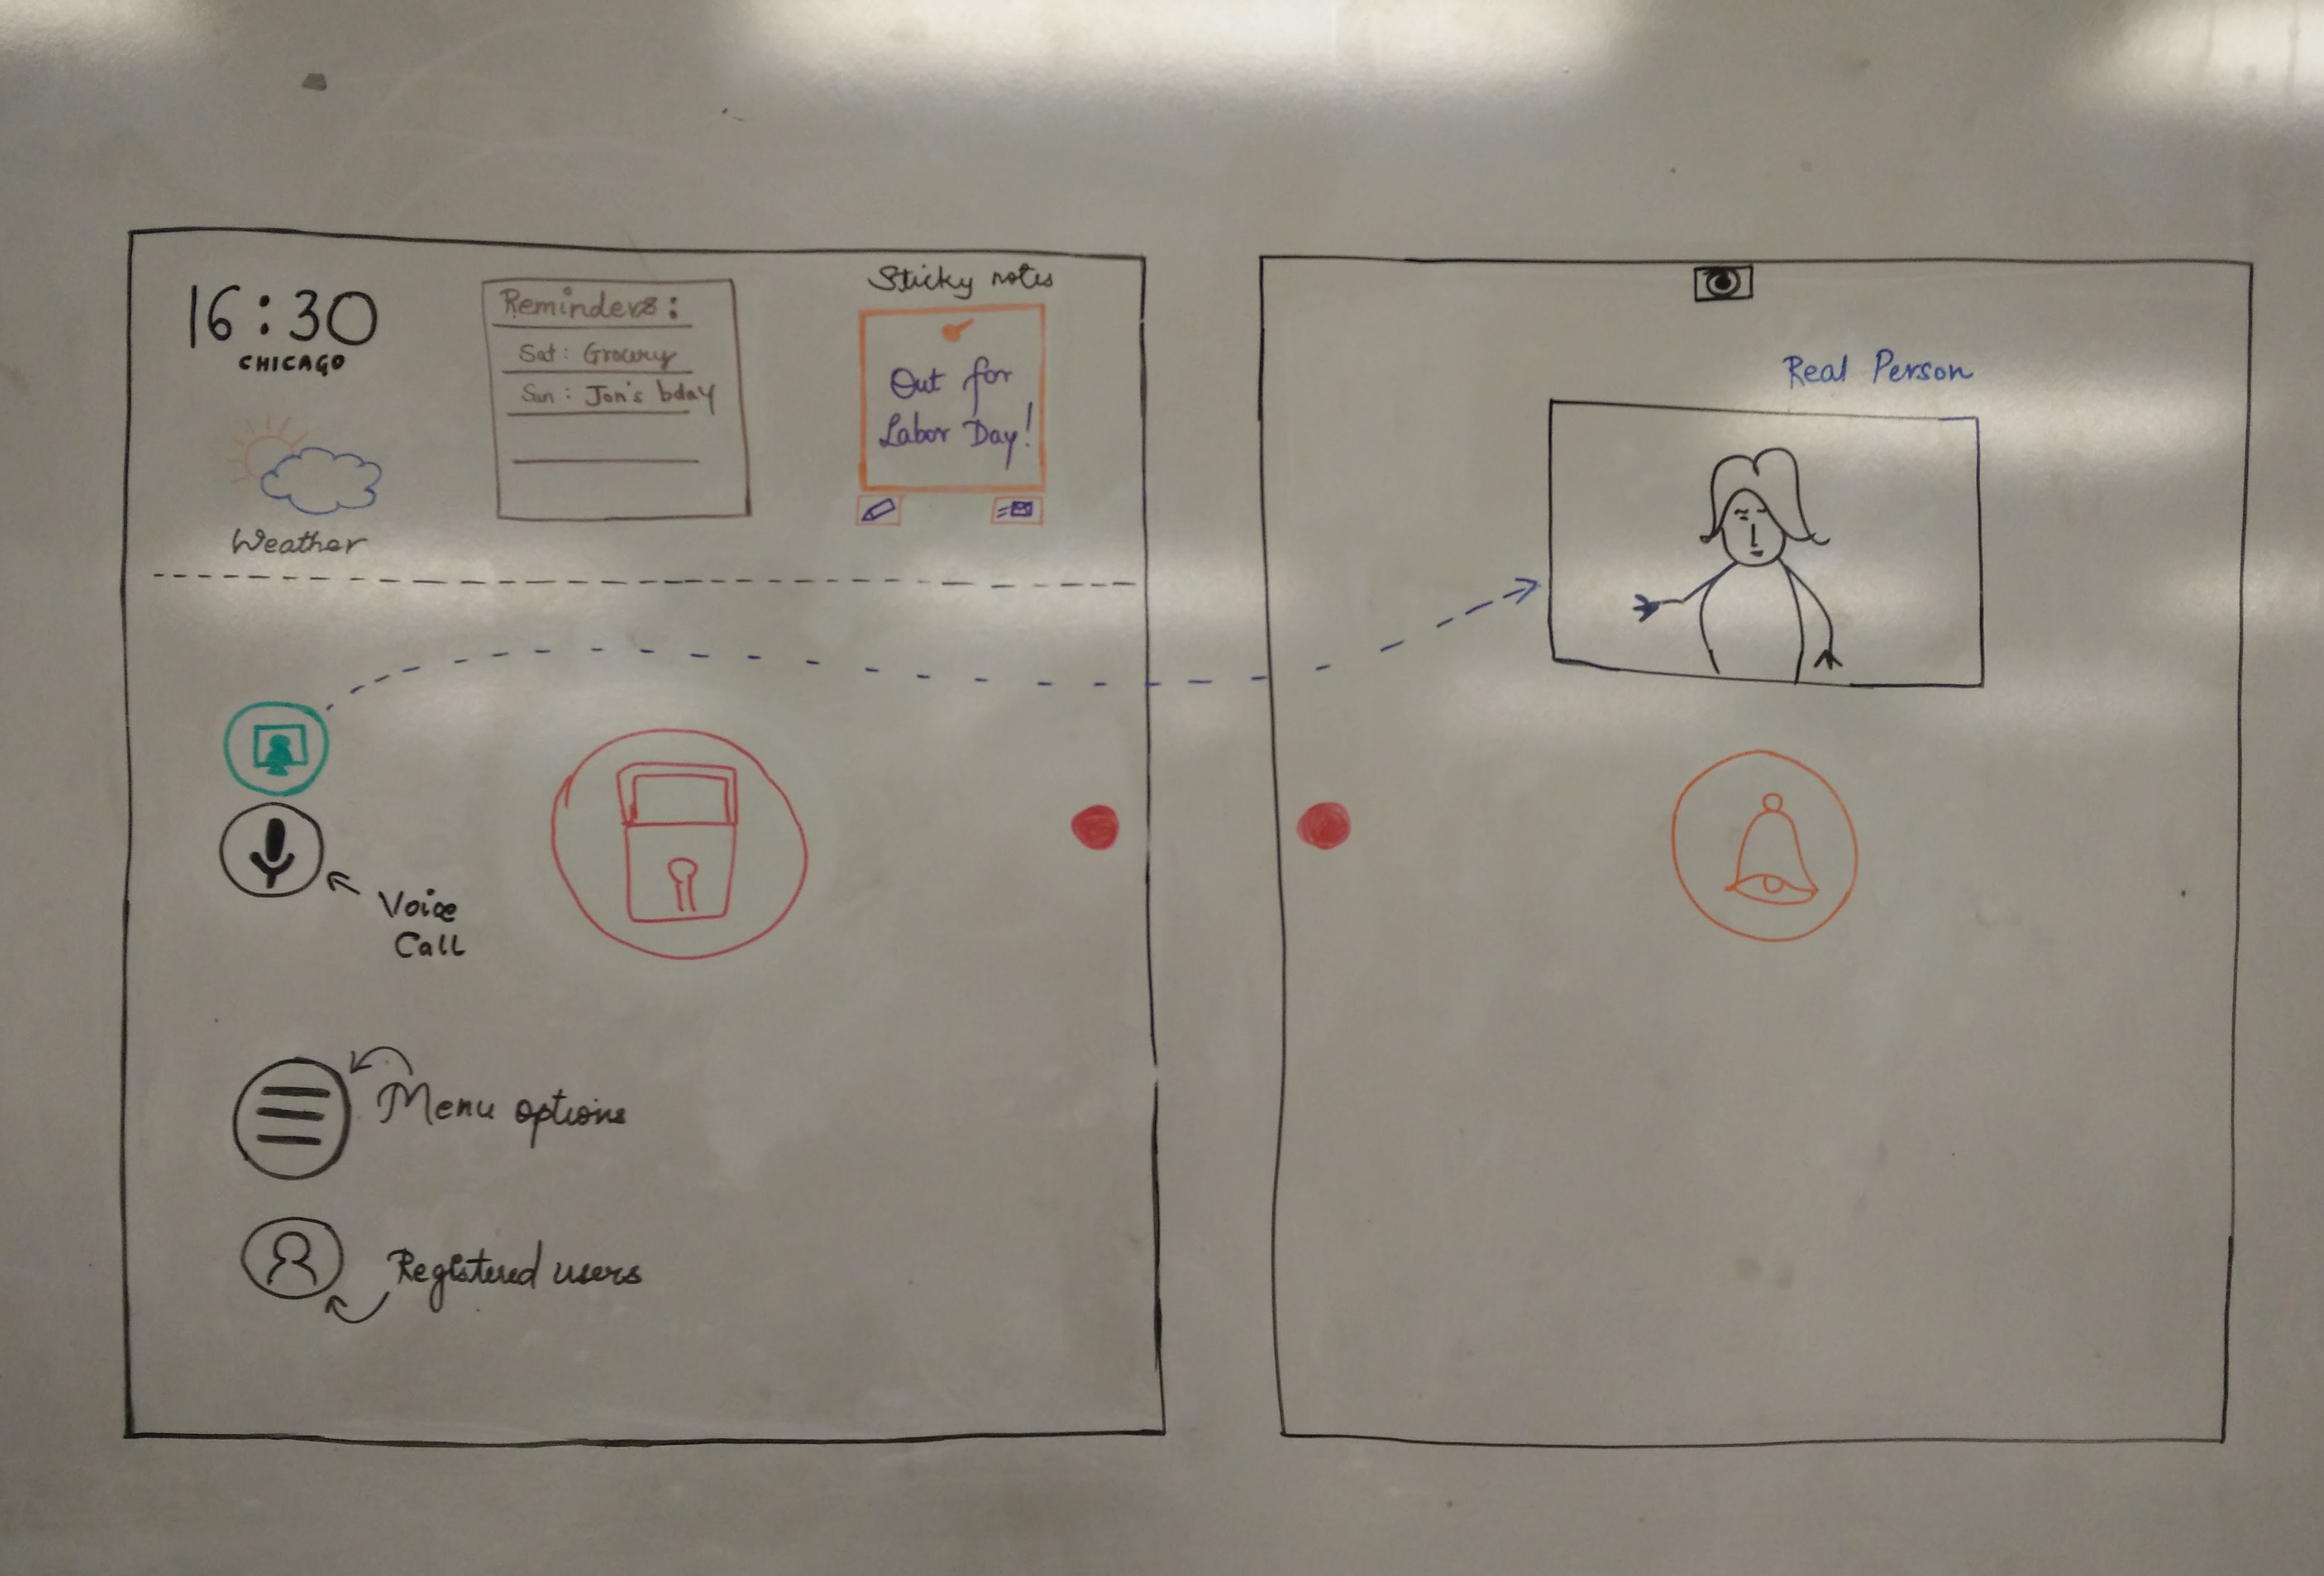 16:30
CHICAGO
Weather
Reminders:
Sat: Grocery
Sun: Jon's bday
Sticky notes
Out for
Labor Day!
Voice
Call
Menu options
Registered users
Real Person